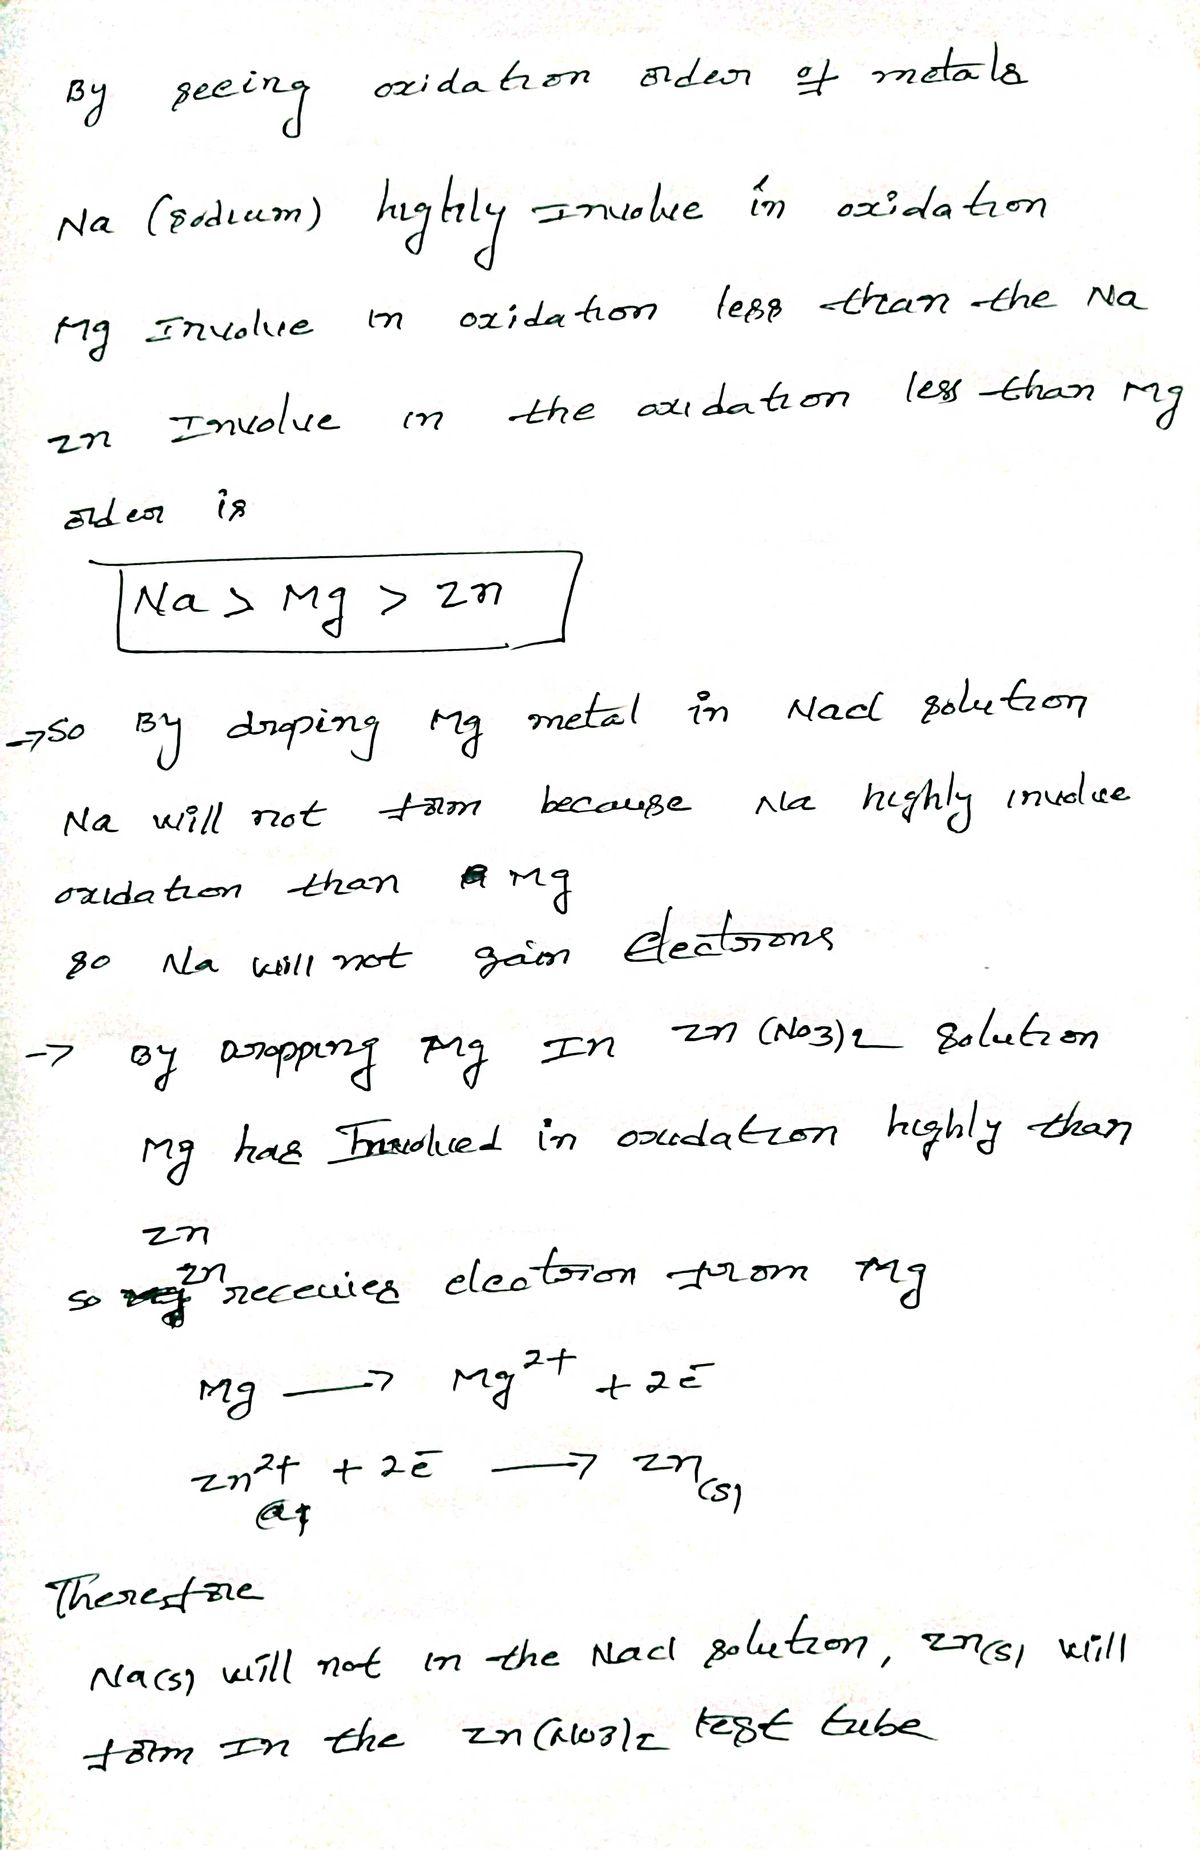 By seeing oxidation order of metals
Na (sodium) highly Involve in oxidation
Mg Involve in oxidation less than the Na
Zn Involve in the oxidation less than Mg
order is
Na > Mg > Zn
→ So By droping Mg metal in Nacl solution
Na will not form because Na highly involve
oxidation than Mg
so Na will not gain electrons
→ By dropping Mg In Zn (No3)2 solution
Mg has Involved in oxidation highly than
Zn
so Zn receives electron from Mg
Mg → Mg2+ + 2e-
Zn2+ + 2e- → Zn(s)
aq
Therefore
Na(s) will not in the Nacl solution, Zn(s) will
form In the Zn(No3)2 test tube